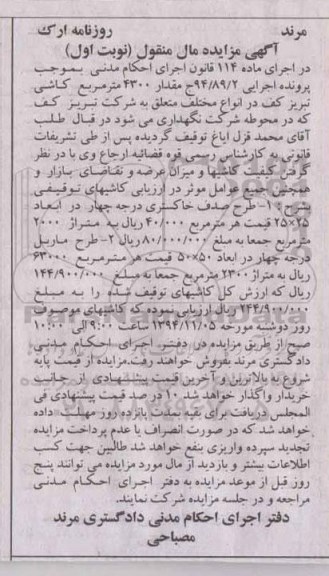 مرند روزنامه ارک
آگهی مزایده مال منقول (نوبت اول)
در اجرای ماده ۱۱۴ قانون اجرای احکام مدنی بموجب
پرونده اجرایی ۹۴/۸۹/۲ج مقدار ۴۳۰۰ مترمربع کاشی
تبریز کف در انواع مختلف متعلق به شرکت تبریز کف
که در محوطه شرکت نگهداری می شود در قبال طلب
آقای محمد قزل ایاغ توقیف گردیده پس از طی تشریفات
قانونی و کارشناس رسمی قوه قضائیه ارجاع وی با در نظر
گرفتن کیفیت کاشیها و میزان عرضه و تقاضای بازار و
همچنین جمیع عوامل موثر در ارزیابی کاشیهای توقیفی
بشرح : ۱- طرح صدف خاکستری درجه چهار در ابعاد
۲۵×۲۵ قیمت هر مترمربع ۴۰/۰۰۰ ریال به متراژ ۲۰۰۰
مترمربع جمعا به مبلغ ۸۰/۰۰۰/۰۰۰ ریال ۲- طرح ماربل
درجه چهار در ابعاد ۵۰×۵۰ قیمت هر مترمربع ۶۳۰۰۰
ریال به متراژ ۲۳۰۰ مترمربع جمعا به مبلغ ۱۴۴/۹۰۰/۰۰۰
ریال که ارزش کل کاشیهای توقیف شده را به مبلغ
۲۲۴/۹۰۰/۰۰۰ ریال ارزیابی نموده که کاشیهای موصوف
روز دوشنبه مورخه ۱۳۹۴/۱۱/۰۵ ساعت ۹:۰۰ الی ۱۰:۰۰
صبح از طریق مزایده در دفتر اجرای احکام مدنی
دادگستری مرند بفروش خواهند رفت.مزایده از قیمت پایه
شروع به بالاترین و آخرین قیمت پیشنهادی از جانب
خریدار واگذار خواهد شد ۱۰ در صد قیمت پیشنهادی فی
المجلس دریافت برای بقیه بمدت پانزده روز مهلت داده
خواهد شد که در صورت انصراف یا عدم پرداخت مزایده
تجدید سپرده واریزی بنفع خواهد شد طالبین جهت کسب
اطلاعات بیشتر و بازدید از مال مورد مزایده می توانند پنج
روز قبل از موعد مزایده به دفتر اجرای احکام مدنی
مراجعه و در جلسه مزایده شرکت نمایند.
دفتر اجرای احکام مدنی دادگستری مرند
مصباحی